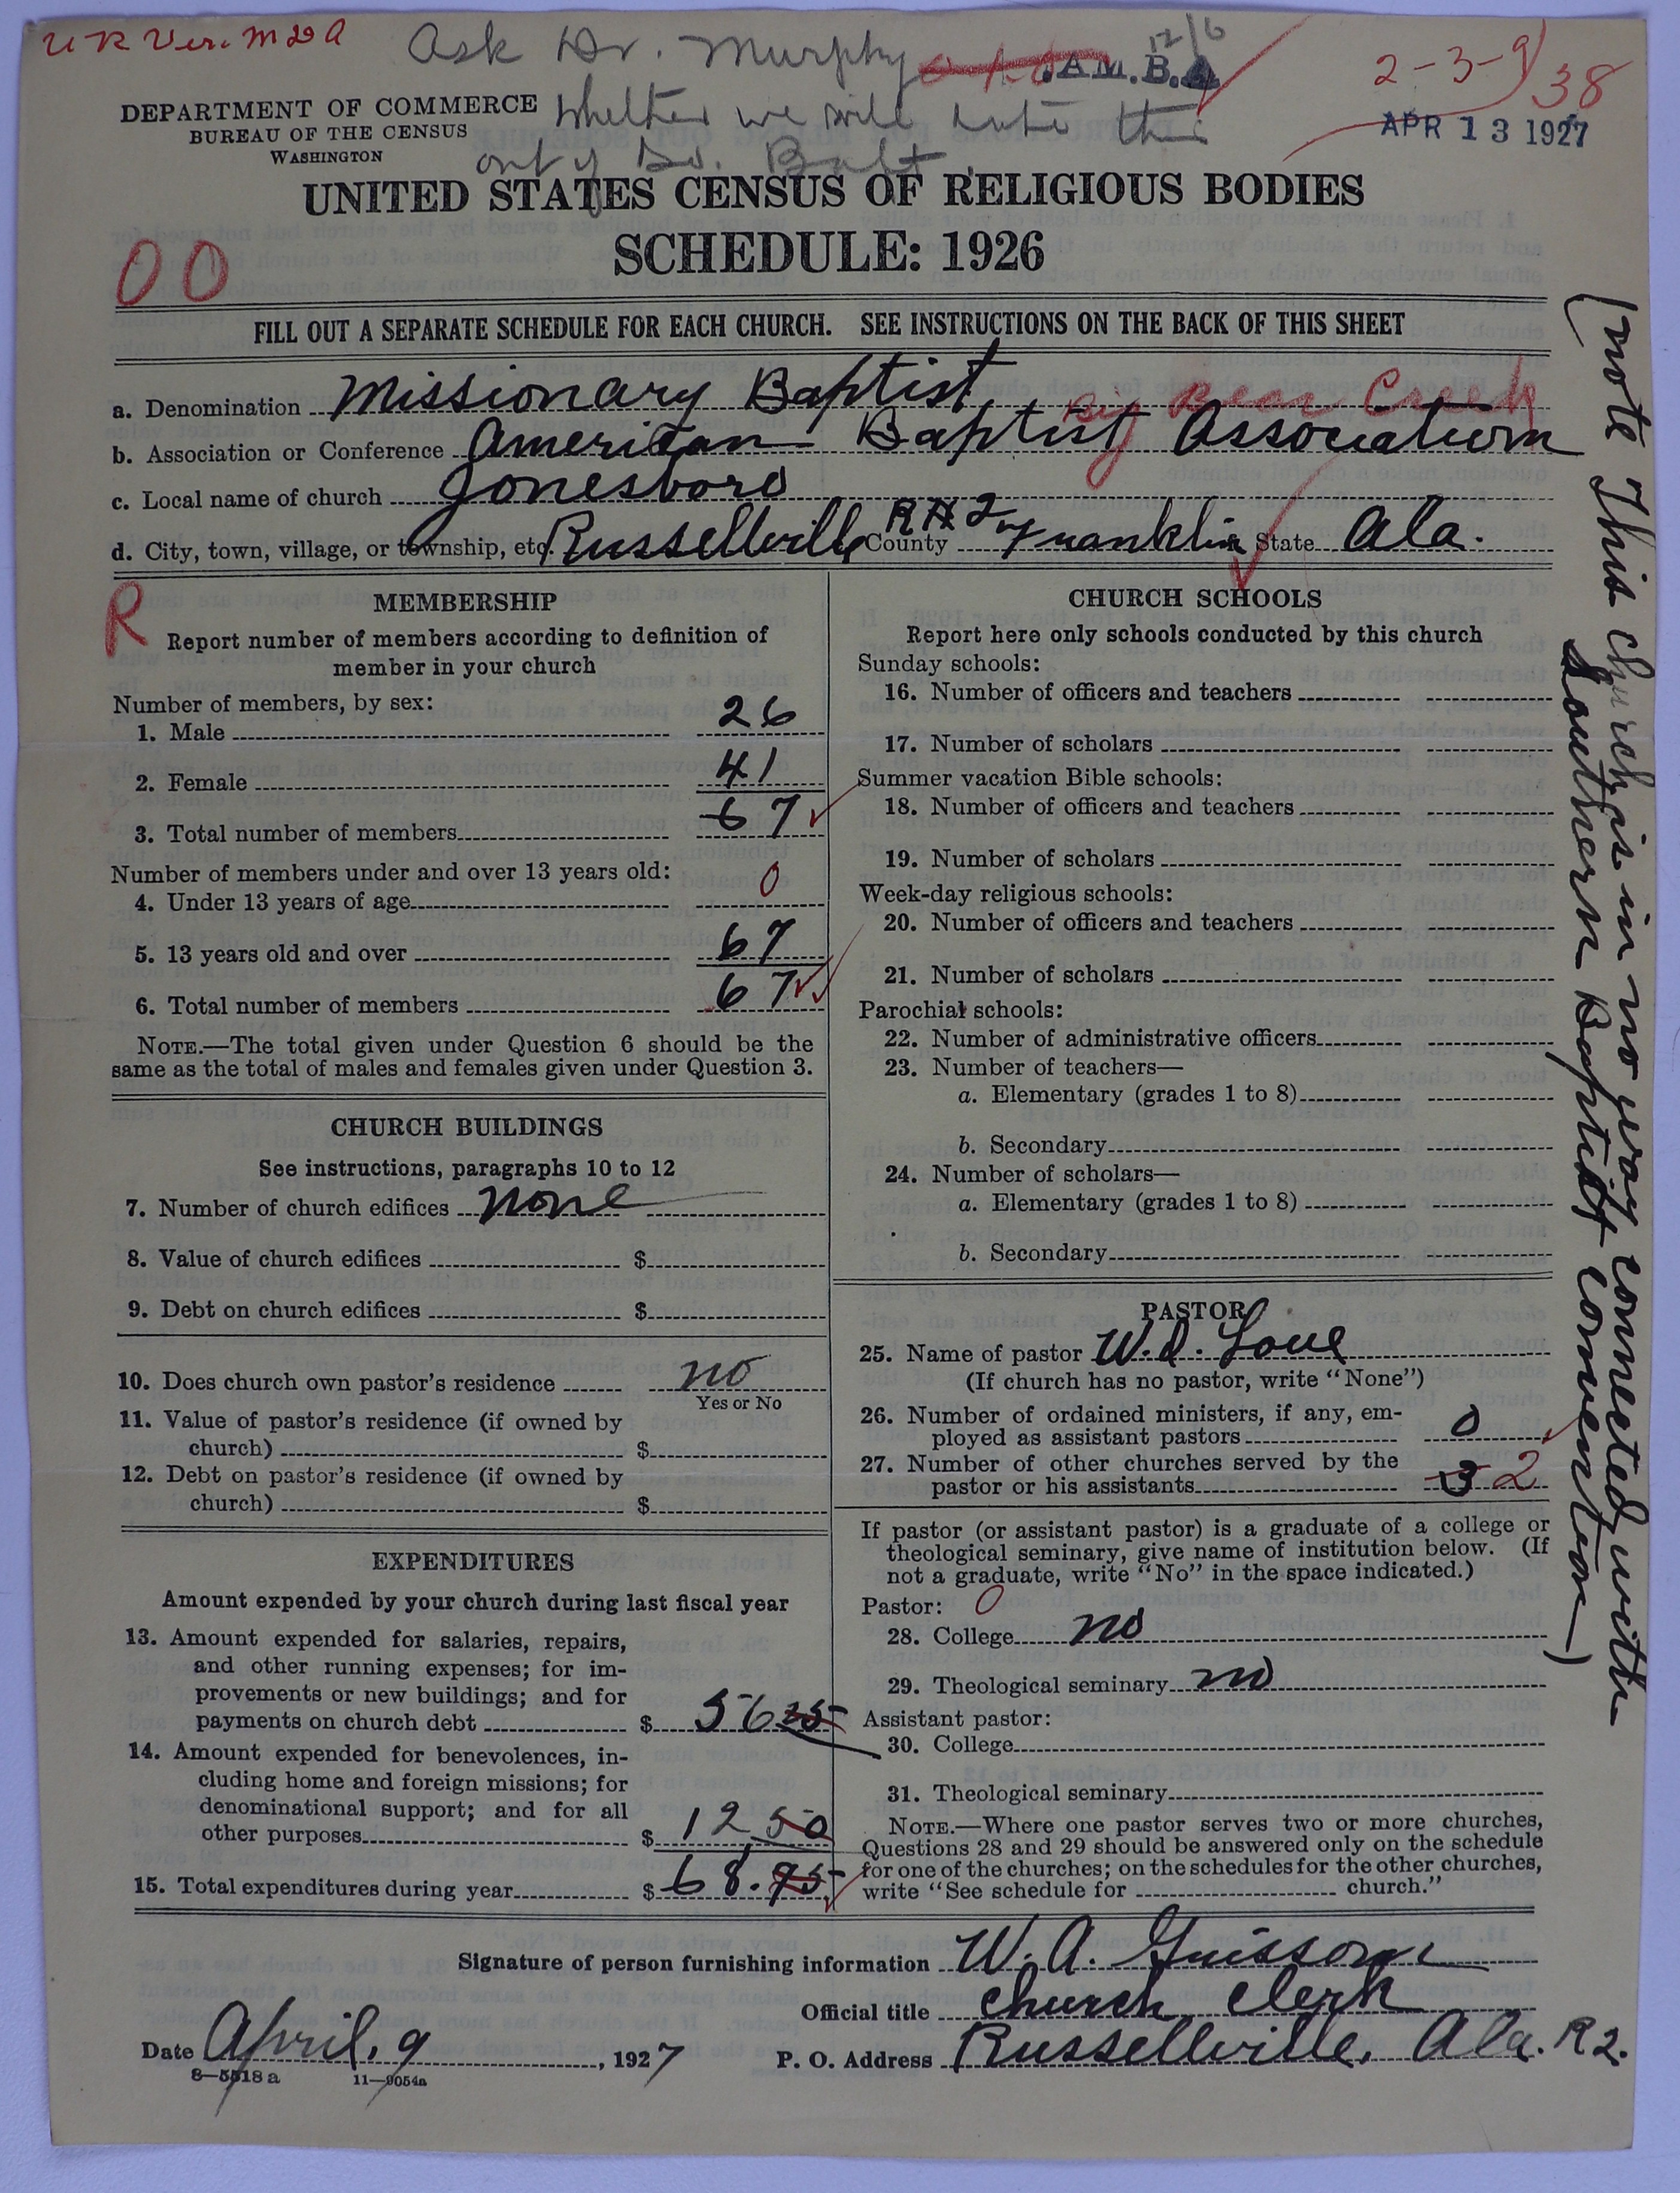 U R Ver. M 29 A
Ask Dr. Murphy
12/6
AM. B. A
2-3-9
38
DEPARTMENT OF COMMERCE
BUREAU OF THE CENSUS
WASHINGTON
whether we will take this
out of So. Bapt.
APR 13 1927
UNITED STATES CENSUS OF RELIGIOUS BODIES
SCHEDULE: 1926
00
FILL OUT A SEPARATE SCHEDULE FOR EACH CHURCH. SEE INSTRUCTIONS ON THE BACK OF THIS SHEET
a. Denomination Missionary Baptist
Big Bear Creek
b. Association or Conference American Baptist Association
c. Local name of church Jonesboro
d. City, town, village, or township, etc. Russellville R#2 County Franklin State Ala.
R
MEMBERSHIP
Report number of members according to definition of
member in your church
Number of members, by sex:
1. Male 26
2. Female 41
3. Total number of members 67
Number of members under and over 13 years old:
4. Under 13 years of age 0
5. 13 years old and over 67
6. Total number of members 67
NOTE.—The total given under Question 6 should be the
same as the total of males and females given under Question 3.
CHURCH BUILDINGS
See instructions, paragraphs 10 to 12
7. Number of church edifices none
8. Value of church edifices $
9. Debt on church edifices $
10. Does church own pastor's residence no
Yes or No
11. Value of pastor's residence (if owned by
church) $
12. Debt on pastor's residence (if owned by
church) $
EXPENDITURES
Amount expended by your church during last fiscal year
13. Amount expended for salaries, repairs,
and other running expenses; for im-
provements or new buildings; and for
payments on church debt $ 56 25
14. Amount expended for benevolences, in-
cluding home and foreign missions; for
denominational support; and for all
other purposes $ 12.50
15. Total expenditures during year $ 68.75
CHURCH SCHOOLS
Report here only schools conducted by this church
Sunday schools:
16. Number of officers and teachers
17. Number of scholars
Summer vacation Bible schools:
18. Number of officers and teachers
19. Number of scholars
Week-day religious schools:
20. Number of officers and teachers
21. Number of scholars
Parochial schools:
22. Number of administrative officers
23. Number of teachers—
a. Elementary (grades 1 to 8)
b. Secondary
24. Number of scholars—
a. Elementary (grades 1 to 8)
b. Secondary
PASTOR
25. Name of pastor W.D. Love
(If church has no pastor, write "None")
26. Number of ordained ministers, if any, em-
ployed as assistant pastors 0
27. Number of other churches served by the
pastor or his assistants 3 2
If pastor (or assistant pastor) is a graduate of a college or
theological seminary, give name of institution below. (If
not a graduate, write "No" in the space indicated.)
Pastor: 0
28. College no
29. Theological seminary no
Assistant pastor:
30. College
31. Theological seminary
NOTE.—Where one pastor serves two or more churches,
Questions 28 and 29 should be answered only on the schedule
for one of the churches; on the schedules for the other churches,
write "See schedule for church."
Signature of person furnishing information W. A. Guissom
Official title Church Clerk
Date April, 9, 1927
P. O. Address Russellville, Ala. R2.
8—5518 a 11—9054a
(note This church is in no way connected with
Southern Baptist convention)